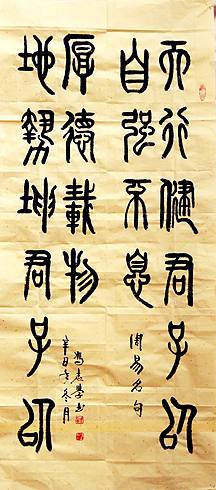 天行健君子以
自强不息
周易名句
地勢坤君子以
厚德載物
辛丑冬月
書